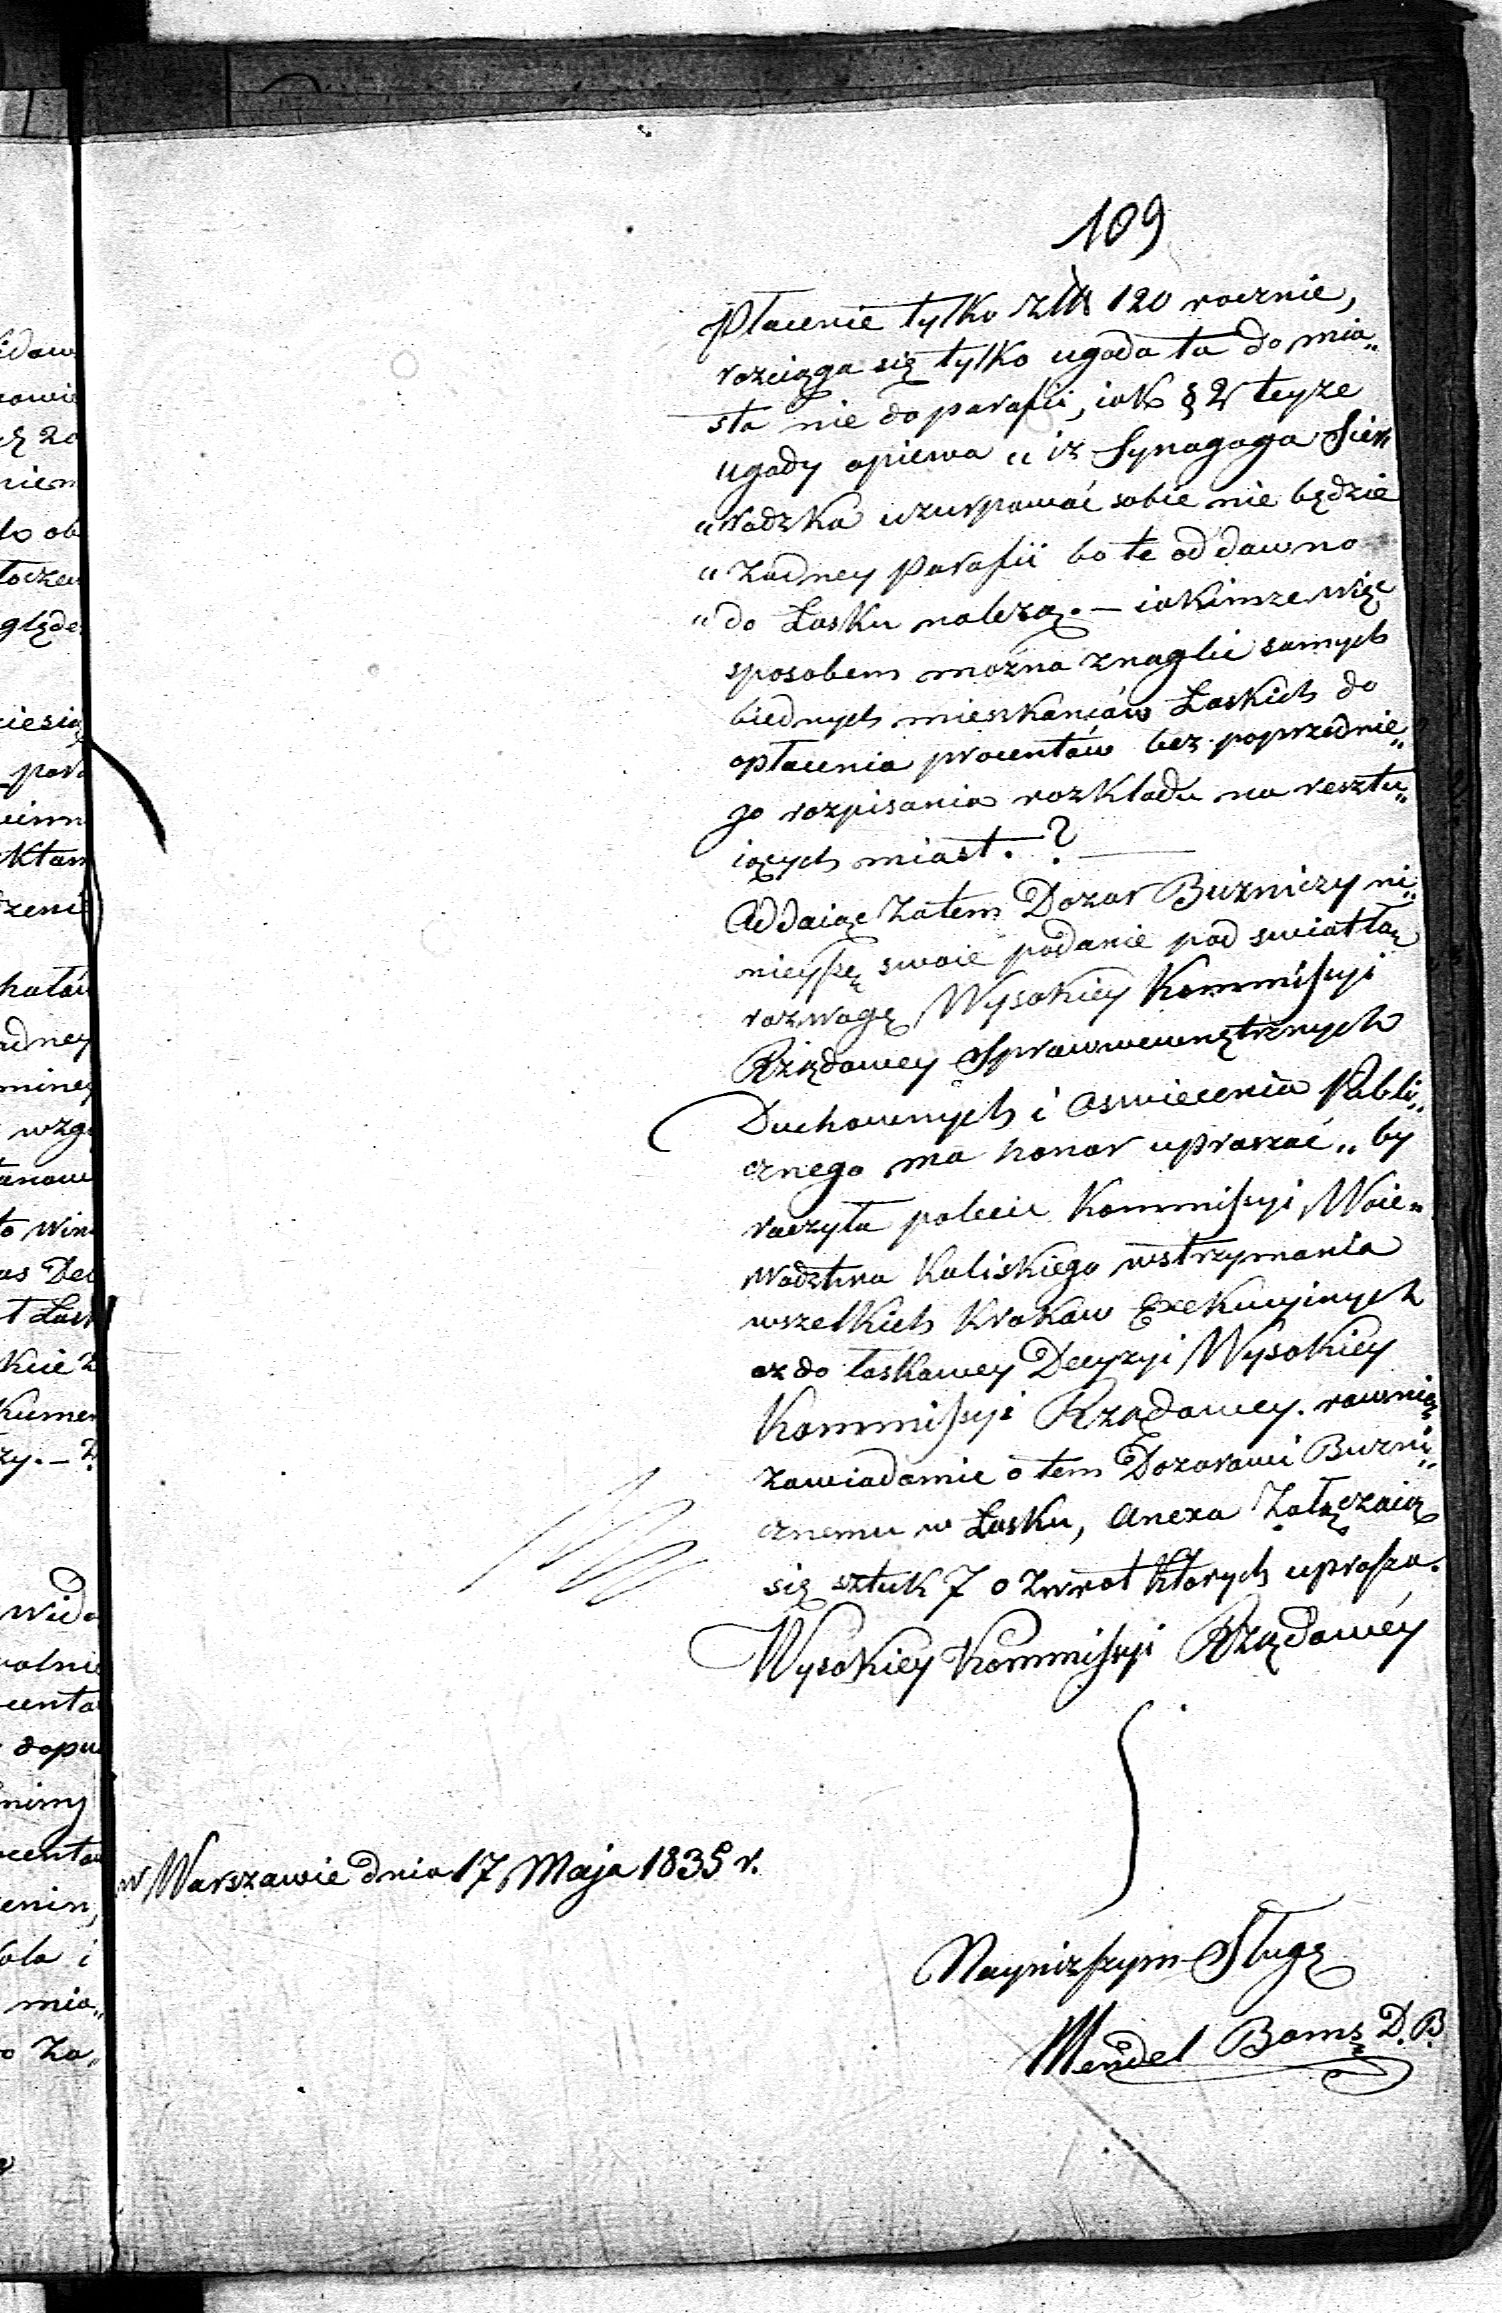 109
płacenie tylko złł 120 rocznie,
rozciąga się tylko ugoda ta do mia„
sta nie do parafii, iak § 2 teyże
ugody opiewa „ iż Synagoga Sier
„ radzka uzurpować sobie nie będzie
„ żadney Parafii bo te od dawno
„ do Łasku należą. — iakimże więc
sposobem można znaglić samych
biednych mieszkańców Łaskich do
opłacenia procentów bez poprzednie„
go rozpisania rozkładu na resztu„
iących miast. ?
Oddaiąc zatem Dozor Buzniczy ni„
nieyszę swoie podanie pod swiatłą
rozwagę Wysokiey Kommissyi
Rządowey Spraw wewnętrznych
Duchownych i Oswiecenia Publi„
cznego ma honor upraszać „ by
raczyła polecić Kommissyi Woie„
wodztwa Kaliskiego wstrzymania
wszelkich krokow Exekucyinych
aż do łaskawey Decyzyi Wysokiey
Kommissyi Rządowey. rownież
zawiadomić o tem Dozorowi Buzni„
cznemu w Łasku, Anexa załączaią
się sztuk 7 o zwrot ktorych uprasza.
Wysokiey Kommissyi Rządowéy
w Warszawie dnia 17 Maja 1835 r.
Nayniższym Sługą
Mendel Boms D. B.